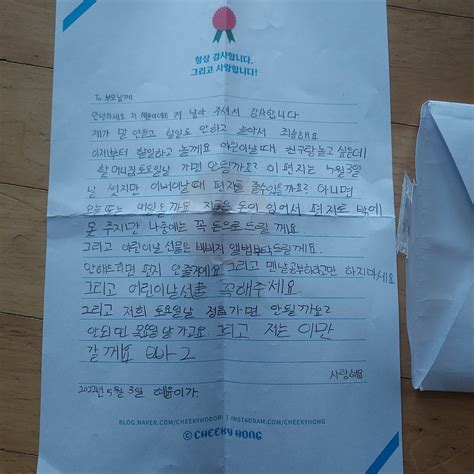 항상 감사합니다.
그리고 사랑합니다!
To. 부모님께
안녕하세요 저 혜윤이에요 저 낳아 주셔서 감사합니다
제가 말 안듣고 할일도 안하고 놀아서 죄송해요
이제부터 할일하고 놀게요 어린이날때 친구랑 놀고 싶은데
할머니집 토요일날 가면 안될까요? 이 편지는 5월 3일
날 썼지만 어버이날때 편지로 줄수있을까요? 아니면
오늘 또는 내일 될까요 지금은 돈이 없어서 편지로 밖에
못 주지만 나중에는 꼭 돈으로 드릴 께요
그리고 어린이날 선물은 앨범부탁드릴게요
안해드리면 편지 안줄거에요 그리고 맨날 공부하라고만 하지마세요
그리고 어린이날선물 꼭해주세요
그리고 저희 토요일날 가면 안될까요?
안되면 목요일날 가고요 그리고 저는 이만
갈께요
사랑해요
2022년 5월 3일 혜윤이가.
BLOG.NAVER.COM/CHEEKYHODORI | INSTAGRAM.COM/CHEEKYHONG
© CHEEKY HONG